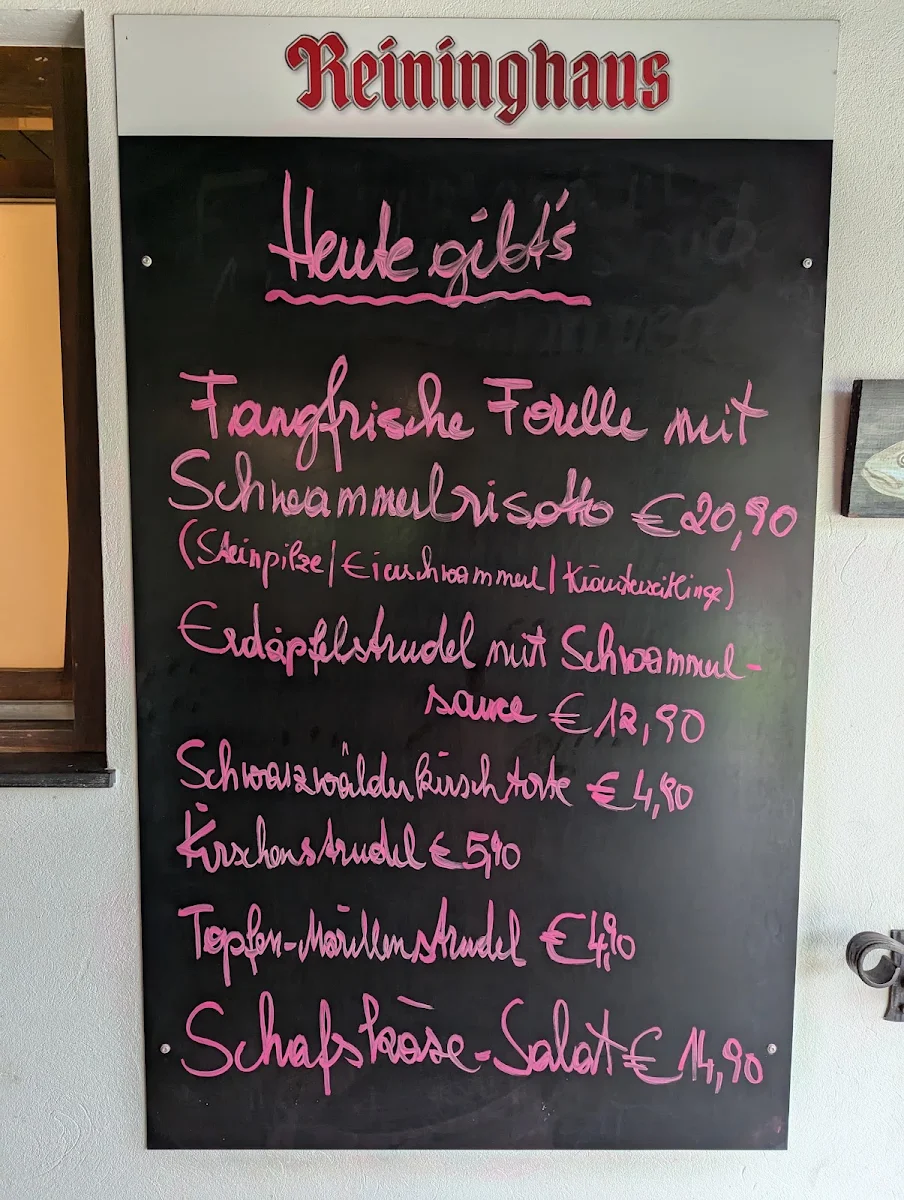 Reininghaus
Heute gibt's
Fangfrische Forelle mit
Schwammerlrisotto € 20,90
(Steinpilze/Eierschwammerl/Kräuterseitlinge)
Erdäpfelstrudel mit Schwammerl-
sauce € 12,90
Schwarzwälderkirschtorte € 4,90
Kirschenstrudel € 5,90
Topfen-Marillenstrudel € 4,90
Schafskäse-Salat € 14,90